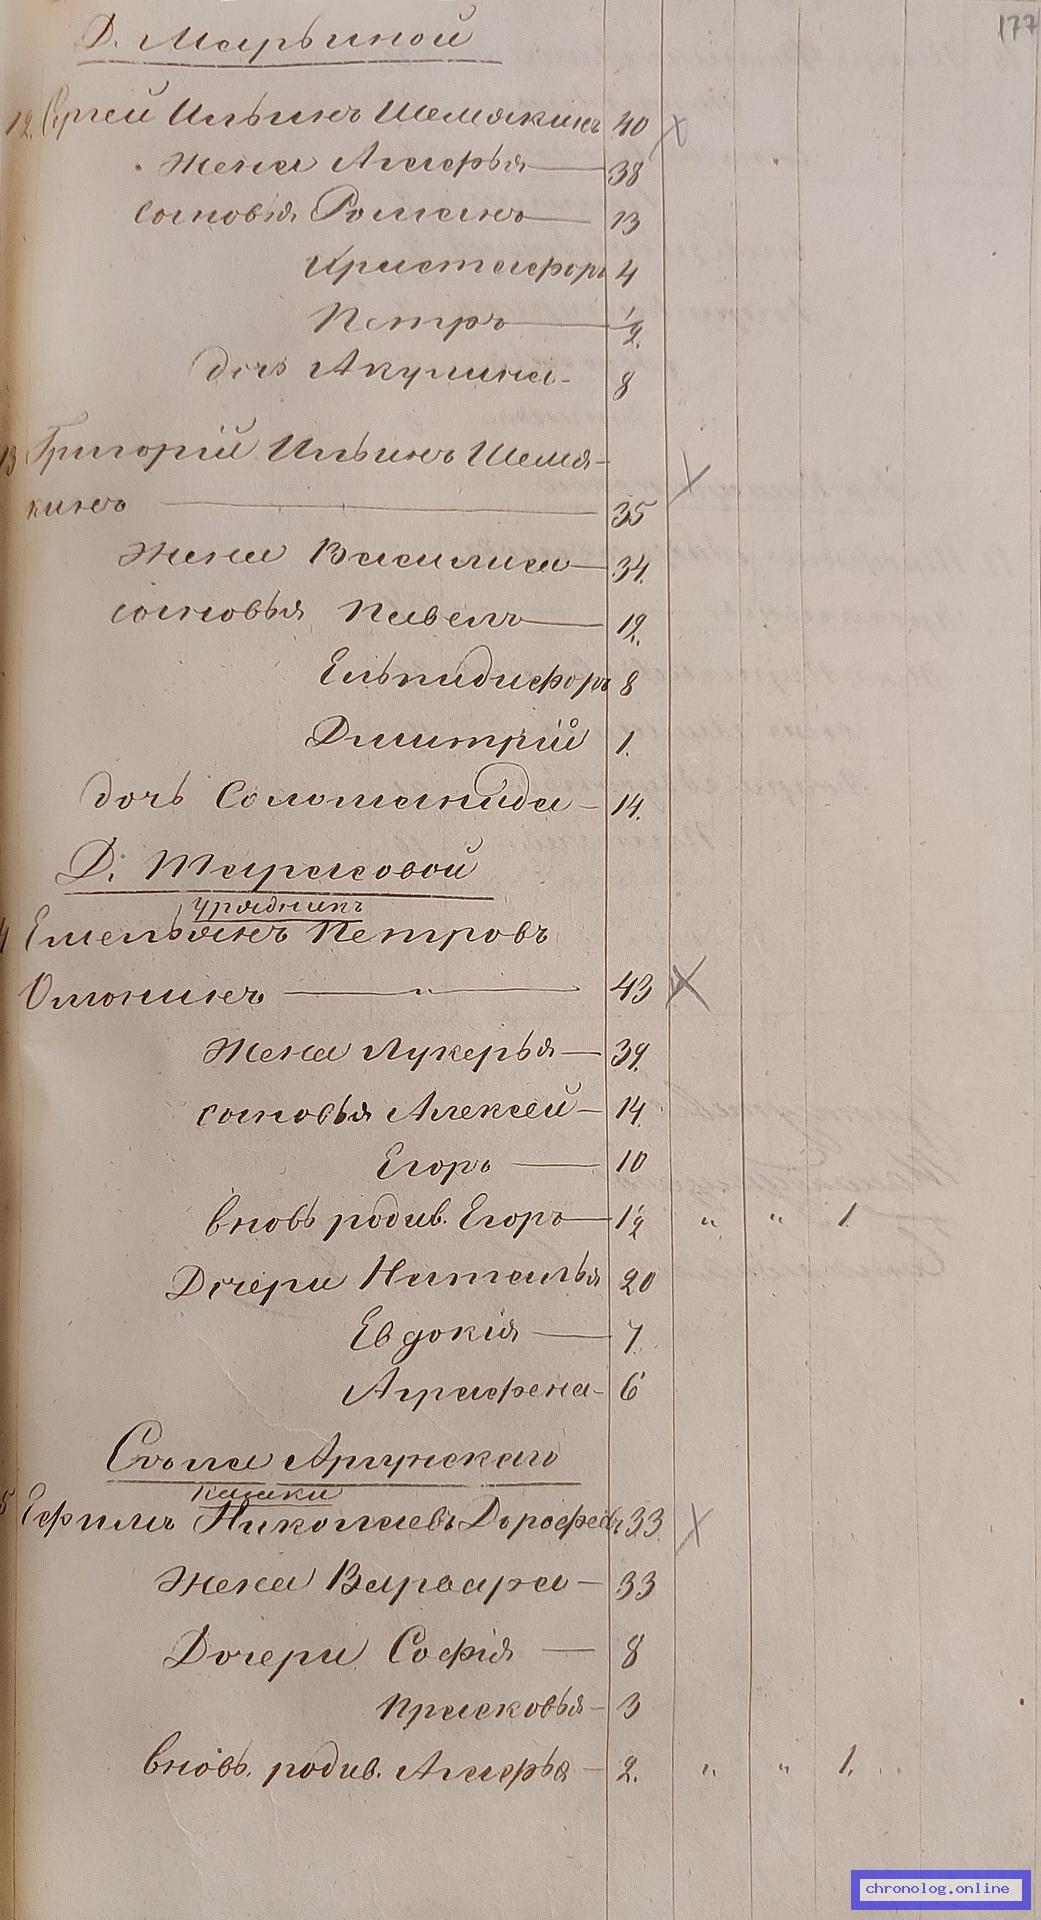 177
Д. Марьиной
12. Сергей Ильинъ Шемякинъ 40
Жена Агафья 38
сыновья Романъ 13
Христофоръ 4
Петръ 1/2
дочь Акулина 8
13 Григорій Ильинъ Шемя-
кинъ 35
Жена Василиса 34
сыновья Павелъ 12
Ельпидифоръ 8
Дмитрій 1
дочь Соломанида 14
Д. Тарасовой
урядникъ
Емельянъ Петровъ
43
Жена Лукерья 39
сыновья Алексей 14
Егоръ 10
вновь родив. Егоръ 1/2 " " 1
Дочери Наталья 20
Евдокія 7
Аграфена 6
Аргунскаго
казаки
Ефимъ Николаевъ Дорофеевъ 33
Жена Варвара 33
Дочери Софія 8
Прасковья 3
вновь родив. Агафья 2 " " 1.
chronolog.online